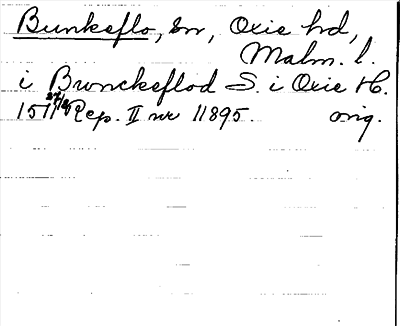 Bunkeflo, sn, Oxie hd,
Malm. l.
i Brunckeflod S. i Oxie H.
1511 27/12 Rep. II nr 11895. orig.